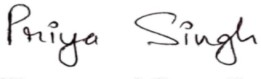 Priya Singh